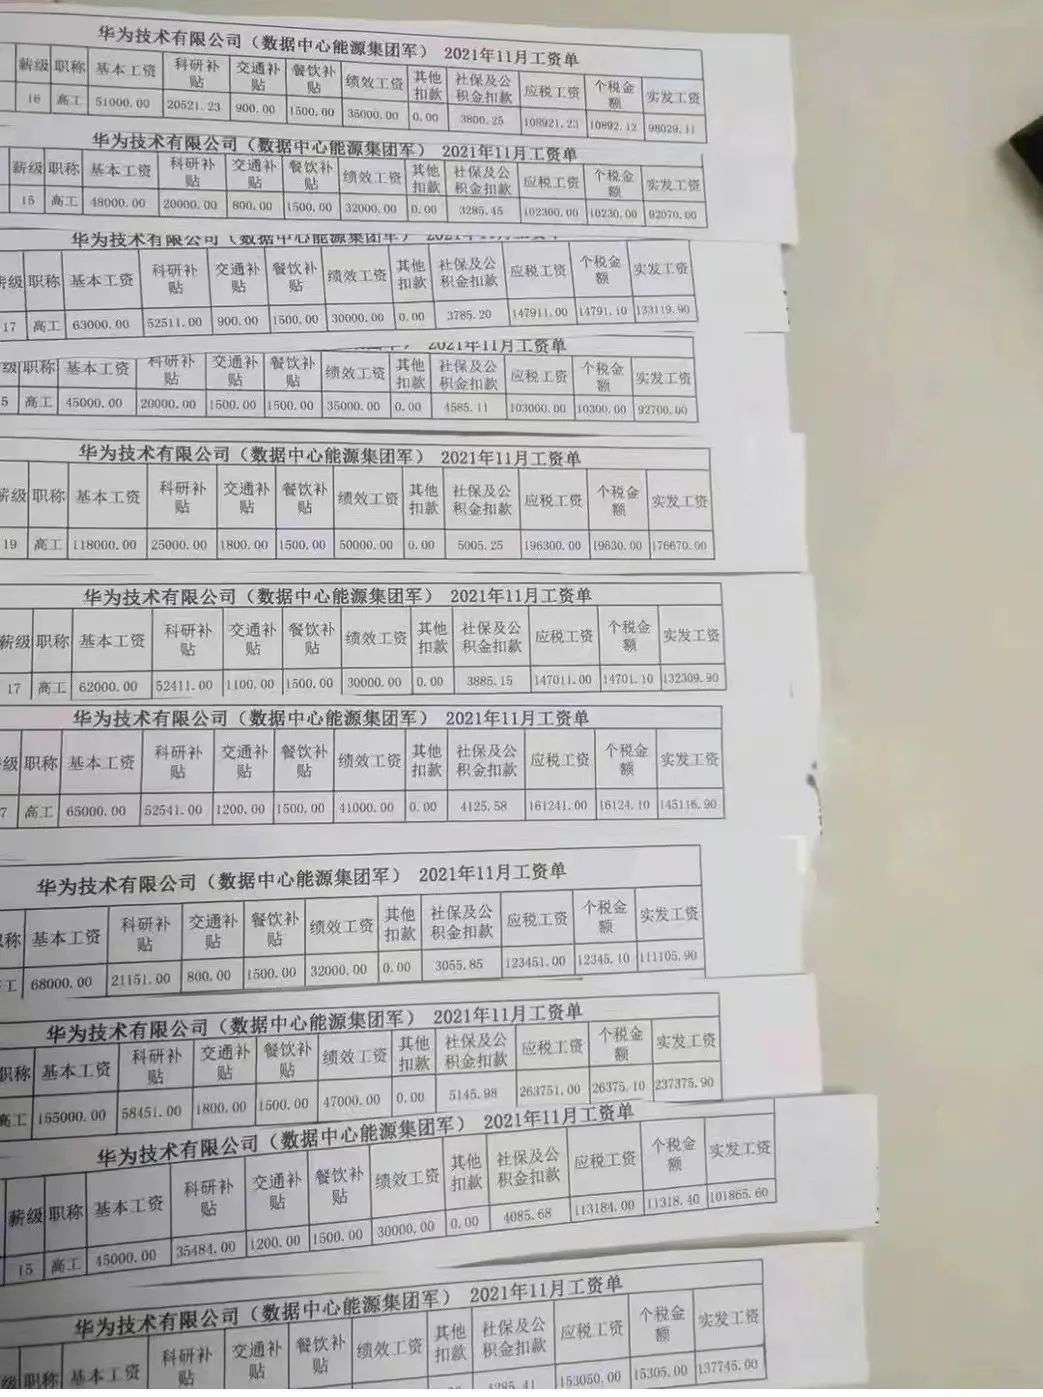 华为技术有限公司（数据中心能源集团军） 2021年11月工资单
薪级 职称 基本工资 科研补贴 交通补贴 餐饮补贴 绩效工资 其他扣款 社保及公积金扣款 应税工资 个税金额 实发工资
16 高工 51000.00 20521.23 900.00 1500.00 35000.00 0.00 3800.25 108921.23 10892.12 98029.11
华为技术有限公司（数据中心能源集团军） 2021年11月工资单
薪级 职称 基本工资 科研补贴 交通补贴 餐饮补贴 绩效工资 其他扣款 社保及公积金扣款 应税工资 个税金额 实发工资
15 高工 48000.00 20000.00 800.00 1500.00 32000.00 0.00 3285.45 102300.00 10230.00 92070.00
华为技术有限公司（数据中心能源集团军） 2021年11月工资单
薪级 职称 基本工资 科研补贴 交通补贴 餐饮补贴 绩效工资 其他扣款 社保及公积金扣款 应税工资 个税金额 实发工资
17 高工 63000.00 52511.00 900.00 1500.00 30000.00 0.00 3785.20 147911.00 14791.10 133119.90
2021年11月工资单
级 职称 基本工资 科研补贴 交通补贴 餐饮补贴 绩效工资 其他扣款 社保及公积金扣款 应税工资 个税金额 实发工资
5 高工 45000.00 20000.00 1500.00 1500.00 35000.00 0.00 4585.11 103000.00 10300.00 92700.00
华为技术有限公司（数据中心能源集团军） 2021年11月工资单
薪级 职称 基本工资 科研补贴 交通补贴 餐饮补贴 绩效工资 其他扣款 社保及公积金扣款 应税工资 个税金额 实发工资
19 高工 118000.00 25000.00 1800.00 1500.00 50000.00 0.00 5005.25 196300.00 19630.00 176670.00
华为技术有限公司（数据中心能源集团军） 2021年11月工资单
薪级 职称 基本工资 科研补贴 交通补贴 餐饮补贴 绩效工资 其他扣款 社保及公积金扣款 应税工资 个税金额 实发工资
17 高工 62000.00 52411.00 1100.00 1500.00 30000.00 0.00 3885.15 147011.00 14701.10 132309.90
华为技术有限公司（数据中心能源集团军） 2021年11月工资单
级 职称 基本工资 科研补贴 交通补贴 餐饮补贴 绩效工资 其他扣款 社保及公积金扣款 应税工资 个税金额 实发工资
7 高工 65000.00 52541.00 1200.00 1500.00 41000.00 0.00 4125.58 161241.00 16124.10 145116.90
华为技术有限公司（数据中心能源集团军） 2021年11月工资单
职称 基本工资 科研补贴 交通补贴 餐饮补贴 绩效工资 其他扣款 社保及公积金扣款 应税工资 个税金额 实发工资
工 68000.00 21151.00 800.00 1500.00 32000.00 0.00 3055.85 123451.00 12345.10 111105.90
华为技术有限公司（数据中心能源集团军） 2021年11月工资单
职称 基本工资 科研补贴 交通补贴 餐饮补贴 绩效工资 其他扣款 社保及公积金扣款 应税工资 个税金额 实发工资
高工 155000.00 58451.00 1800.00 1500.00 47000.00 0.00 5145.98 263751.00 26375.10 237375.90
华为技术有限公司（数据中心能源集团军） 2021年11月工资单
薪级 职称 基本工资 科研补贴 交通补贴 餐饮补贴 绩效工资 其他扣款 社保及公积金扣款 应税工资 个税金额 实发工资
15 高工 45000.00 35484.00 1200.00 1500.00 30000.00 0.00 4085.68 113184.00 11318.40 101865.60
华为技术有限公司（数据中心能源集团军） 2021年11月工资单
级 职称 基本工资 科研补贴 交通补贴 餐饮补贴 绩效工资 其他扣款 社保及公积金扣款 应税工资 个税金额 实发工资
153050.00 15305.00 137745.00